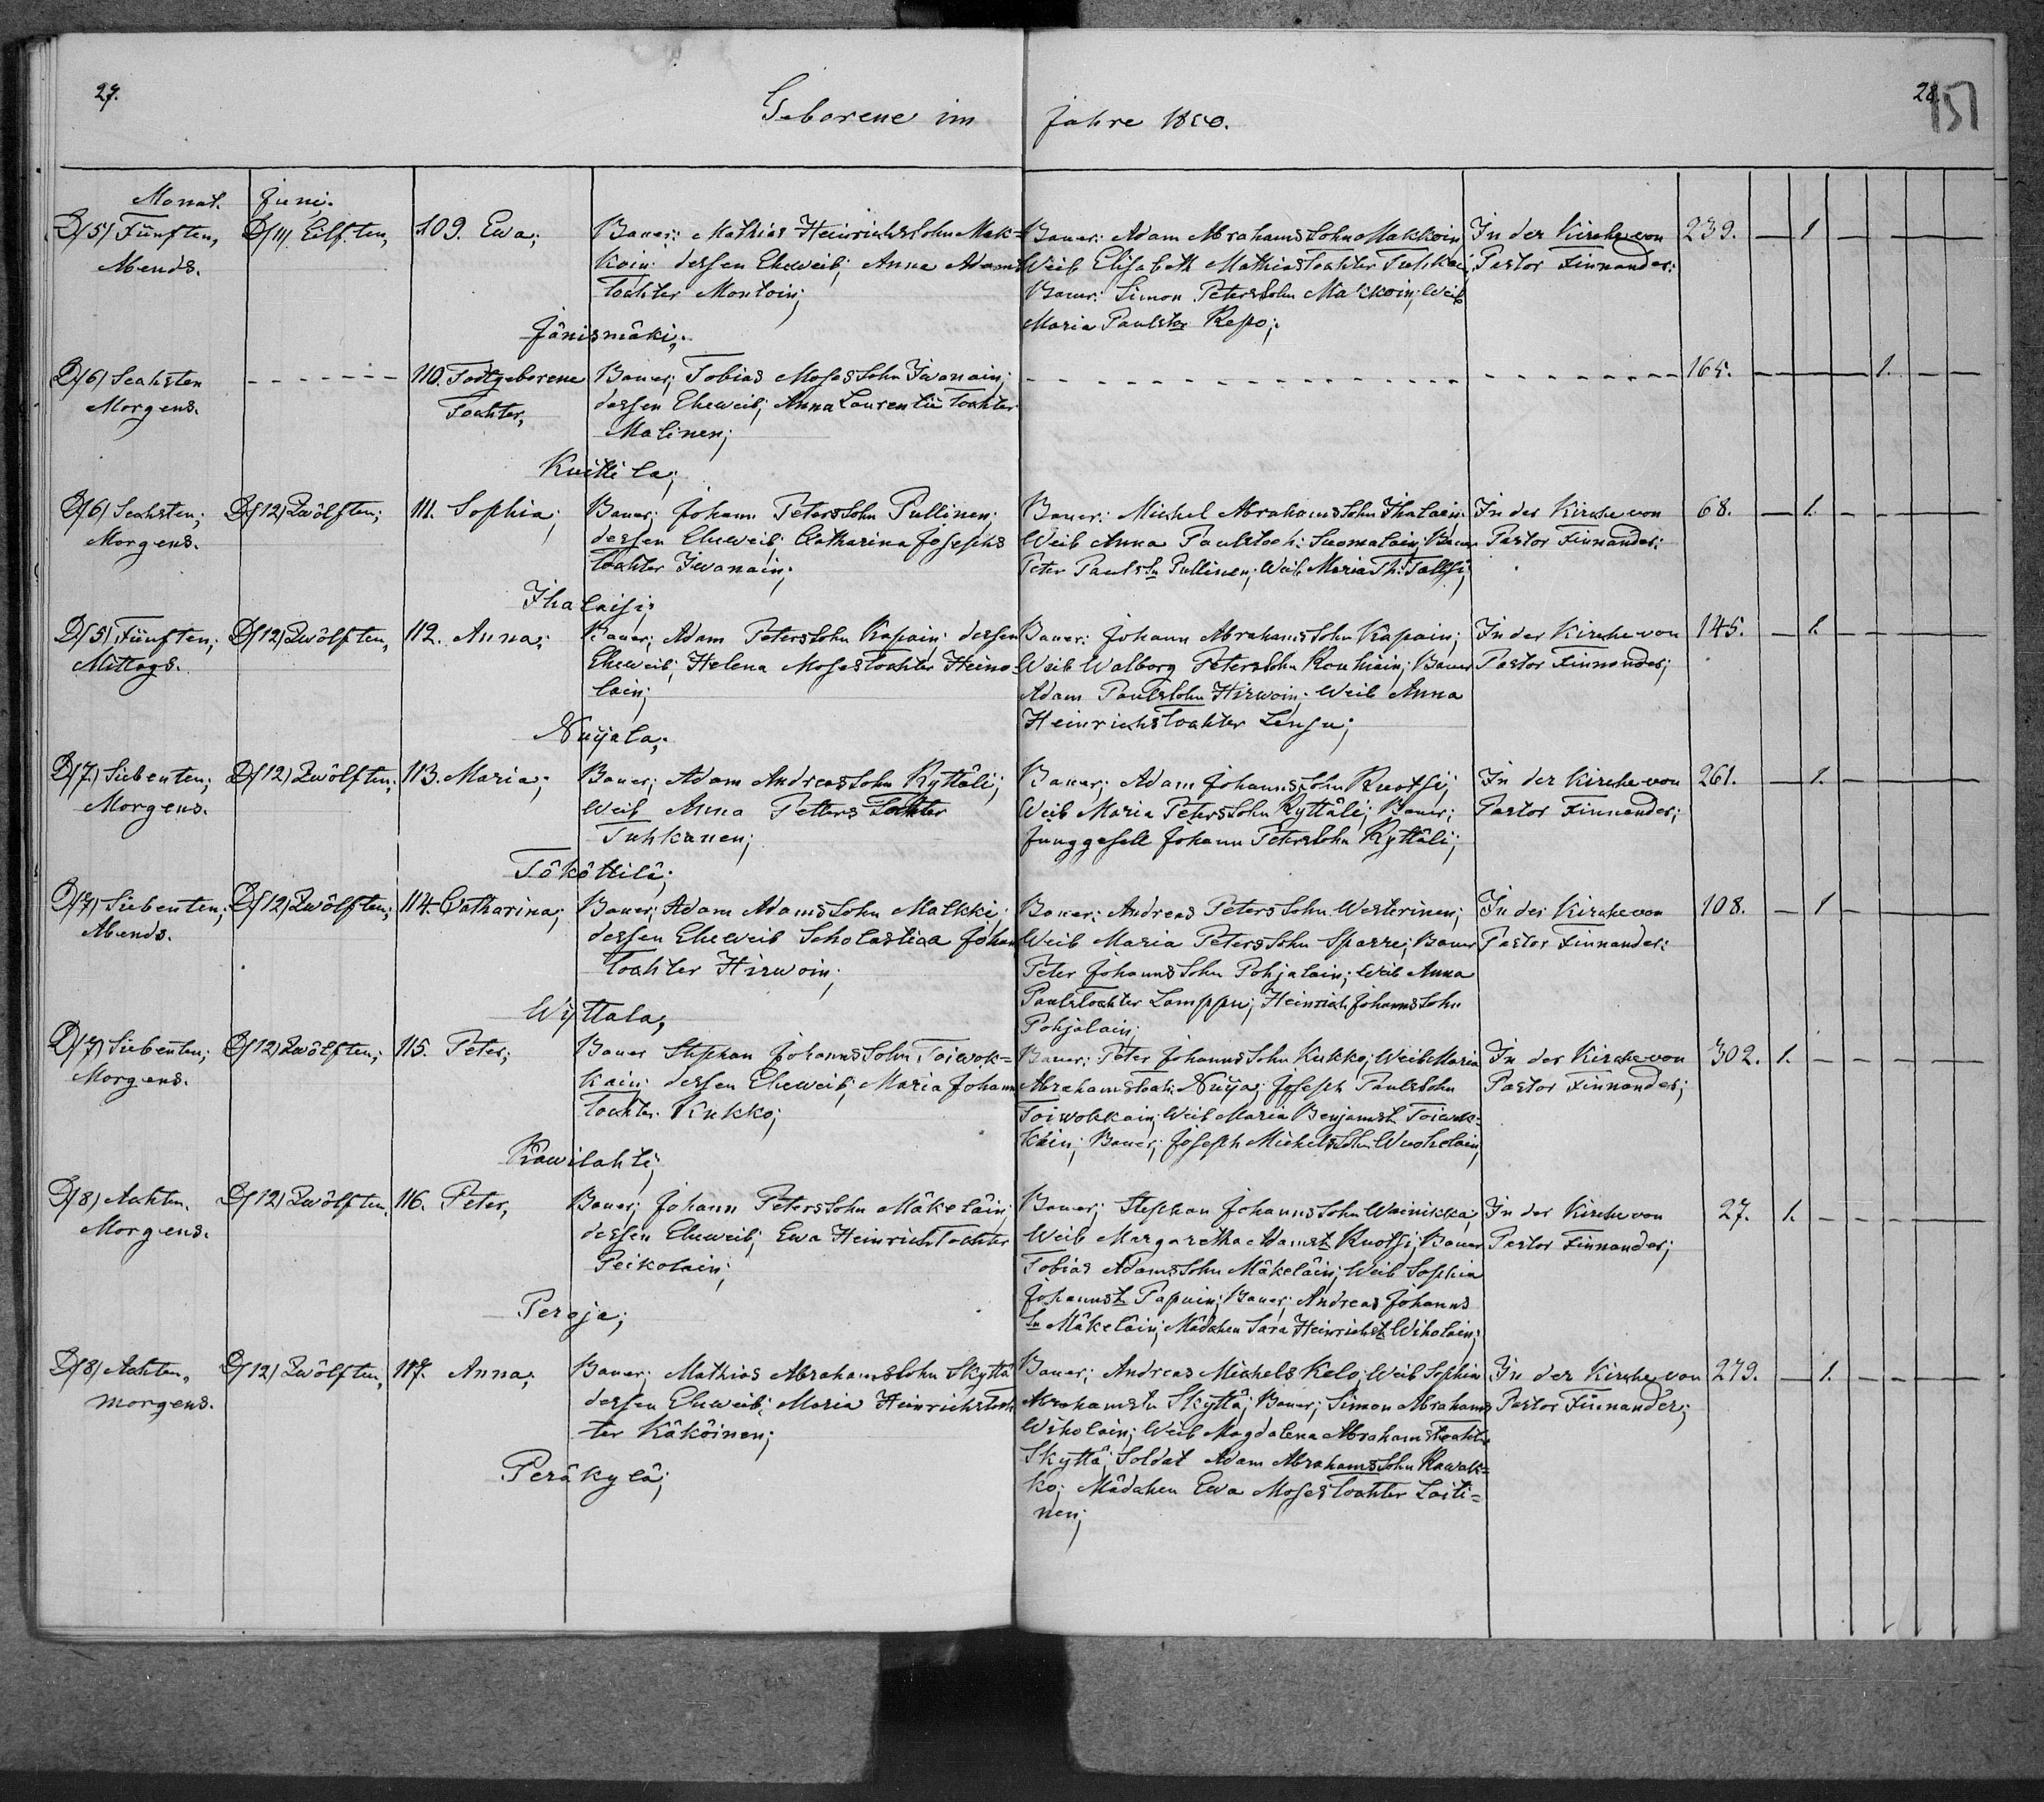 27.
28.
151
Geborene im Jahre 1850.
Monat. Juni.
D/5/ Fünften, D/11/ Eilften, 109. Ewa; Bauer: Mathias Heinrichssohn Mak= Bauer: Adam Abrahamssohn Makkoin In der Kirche von 239. — 1 — — — —
Abends. koin: dessen Eheweib; Anna Adams Weib Elisabeth Mathiastochter Pastor Finnander:
tochter Montoin; Bauer: Simon Peterssohn Makkoin; Weib
Jänismäki; Maria Paulstor Repo;
D/6/ Sechsten 110. Todtgeborene Bauer; Tobias Mosessohn Iwanain; 165. — — — 1. — —
Morgens. Tochter, dessen Eheweib; Anna Laurentii tochter
Malinen;
Kuittila;
D/6/ Sechsten; D/12/ Zwölften; 111. Sophia; Bauer; Johann Peterssohn Pullinen; Bauer: Michel Abrahamssohn Ihalain: In der Kirche von 68. — 1. — — — —
Morgens. dessen Eheweib; Catharina Josephs Weib Anna Paulstoch: Suomalain; Bauer Pastor Finnander:
tochter Iwanain; Peter Pauls Sn Pullinen; Weib Maria Th:
Ihalaisi;
D/5/ Fünften; D/12/ Zwölften, 112. Anna; Bauer; Adam Peterssohn Kapain; dessen Bauer: Johann Abrahamssohn Kapain; In der Kirche von 145. — 1. — — — —
Mittags. Eheweib; Helena Mosestochter Heino= Weib Walborg Peterssohn Rouhiain; Bauer Pastor Finnander;
lain; Adam Paulssohn Hirwoin; Weib Anna
Nuijala; Heinrichstochter Lensu;
D/7/ Siebenten; D/12/ Zwölften; 113. Maria; Bauer; Adam Andreassohn Kyttäli; Bauer: Adam Johannssohn Ruotsi; In der Kirche von 261. — 1. — — — —
Morgens. Weib Anna Petters Tochter Weib Maria Peterssohn Kyttäli; Bauer; Pastor Finnander;
Tuhkanen; Junggesell Johann Peterssohn Kyttäli;
Tököttilä;
D/7/ Siebenten; D/12/ Zwölften; 114. Catharina; Bauer; Adam Adamssohn Malkki; Bauer: Andreas Peterssohn Westerinen; In der Kirche von 108. — 1 — — — —
Abends. dessen Eheweib Scholastica Johan Weib Maria Peterssohn Sparre; Bauer Pastor Finnander:
tochter Hirwoin; Peter Johannssohn Pohjalain; Weib Anna
Paulstochter Lamppu; Heinrich Johannssohn
Wyttala; Pohjalain;
D/7/ Siebenten; D/12/ Zwölften; 115. Peter; Bauer Stephan Johannssohn Toiwok= Bauer: Peter Johannssohn Kukko; Weib Maria In der Kirche von 302. 1. — — — — —
Morgens. kain; dessen Eheweib; Maria Johann Abrahamstoch: Nuija; Joseph Paulssohn Pastor Finnander;
tochter Kukko; Toiwokkain; Weib Maria Benjamst: Toiwok=
kain; Bauer; Joseph Michelssohn Wuohelain;
Kawilahti;
D/8/ Achten. D/12/ Zwölften. 116. Peter, Bauer; Johann Peterssohn Mäkeläin; Bauer; Stephan Johannssohn Wainikka; In der Kirche von 27. 1. — — — — —
Morgens. dessen Eheweib; Ewa Heinrichtochter Weib Margaretha Adamst: Ruotsi; Bauer Pastor Finnander;
Peikolain; Tobias Adamssohn Mäkeläin; Weib Sophia
Johannst: Papuin; Bauer; Andreas Johanns
Peroja; Sn Mäkeläin; Mädchen Sara Heinrichst: Wiholain;
D/8/ Achten, D/12/ Zwölften, 117. Anna; Bauer; Mathias Abrahamssohn Skyttä Bauer; Andreas Michels Kelo; Weib Sophia In der Kirche von 279. — 1. — — — —
morgens. dessen Eheweib; Maria Heinrichstoch Abrahamstr Skyttä; Bauer; Simon Abrahams Pastor Finnander;
ter Käköinen; Wiholain; Weib Magdalena Abrahamstochter
Skyttä; Soldat Adam Abrahamssohn Kawak=
Peräkylä; ko; Mädchen Ewa Mosestochter Laiti=
nen;